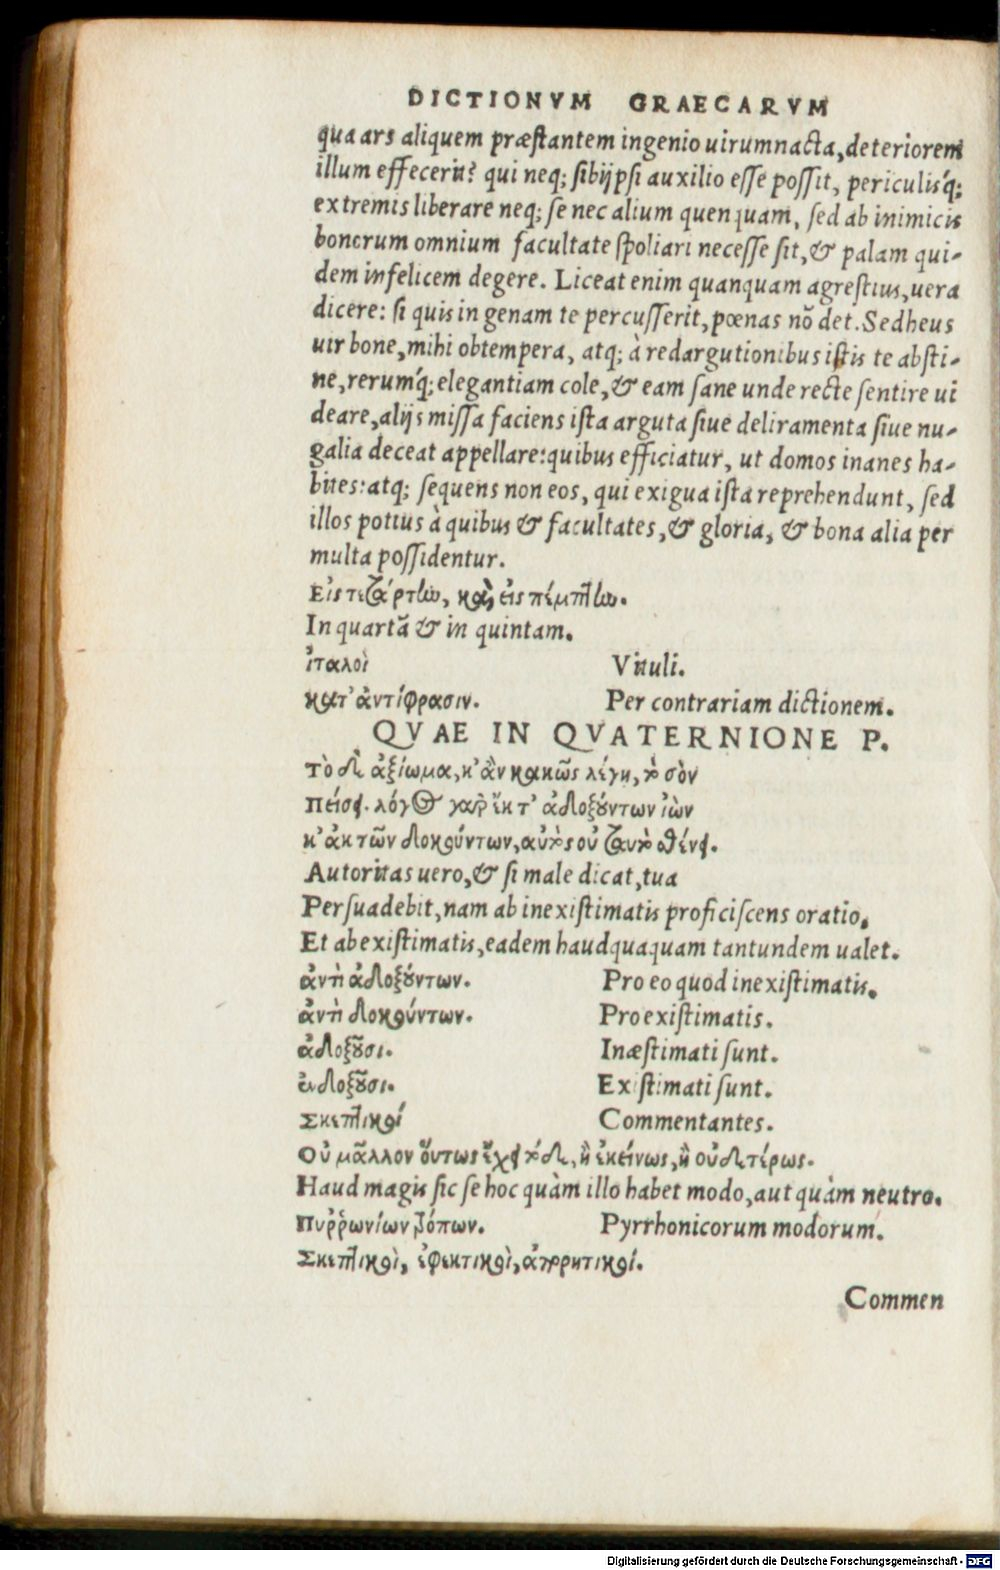 DICTIONVM GRAECARVM
qua ars aliquem præstantem ingenio uirum nacta, deteriorem
illum effecerit? qui neq; sibijpsi auxilio esse possit, periculisq́;
extremis liberare neq; se nec alium quenquam, sed ab inimicis
bonorum omnium facultate spoliari necesse sit, & palam qui-
dem infelicem degere. Liceat enim quanquam agrestius, uera
dicere: si quis in genam te percusserit, pœnas nō det. Sed heus
uir bone, mihi obtempera, atq; à redargutionibus istis te absti-
ne, rerumq́; elegantiam cole, & eam sane unde recte sentire ui
deare, alijs missa faciens ista arguta siue deliramenta siue nu-
galia deceat appellare: quibus efficiatur, ut domos inanes ha-
bites: atq; sequens non eos, qui exigua ista reprehendunt, sed
illos potius à quibus & facultates, & gloria, & bona alia per
multa possidentur.
Εἰς τετάρτην, καὶ εἰς πέμπτην.
In quartā & in quintam.
ἰταλοὶ Vituli.
κατ' ἀντίφρασιν. Per contrariam dictionem.
QVAE IN QVATERNIONE P.
Τὸ δὲ ἀξίωμα, κ' ἂν κακῶς λέγῃ, τὸ σὸν
Πείσει. λόγος γὰρ ἔκ τ' ἀδοξούντων ἰὼν
κ' ἀκ τῶν δοκούντων, αὐτὸς οὐ ταυτὸ σθένει.
Autoritas uero, & si male dicat, tua
Persuadebit, nam ab inexistimatis proficiscens oratio,
Et ab existimatis, eadem haudquaquam tantundem ualet.
ἀντὶ ἀδοξούντων. Pro eo quod inexistimatis.
ἀντὶ δοκούντων. Pro existimatis.
ἀδοξοῦσι. Inæstimati sunt.
ἐνδοξοῦσι. Existimati sunt.
Σκεπτικοί Commentantes.
Οὐ μᾶλλον οὕτως ἔχει τόδε, ἢ ἐκείνως, ἢ οὐδετέρως.
Haud magis sic se hoc quàm illo habet modo, aut quàm neutro.
Πυῤῥωνίων τρόπων. Pyrrhonicorum modorum.
Σκεπτικοὶ, ἐφεκτικοὶ, ἀπορρητικοί.
Commen
Digitalisierung gefördert durch die Deutsche Forschungsgemeinschaft - DFG